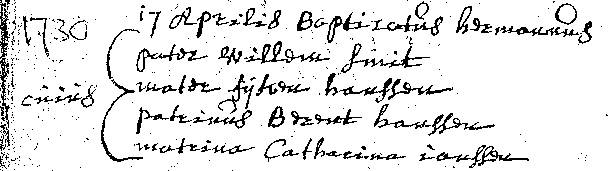 1730 17 Aprilis Baptizatus hermannus
pater Willem Smit
cuius mater fijken harssen
patrinus Berent harssen
matrina Catharina ianssen